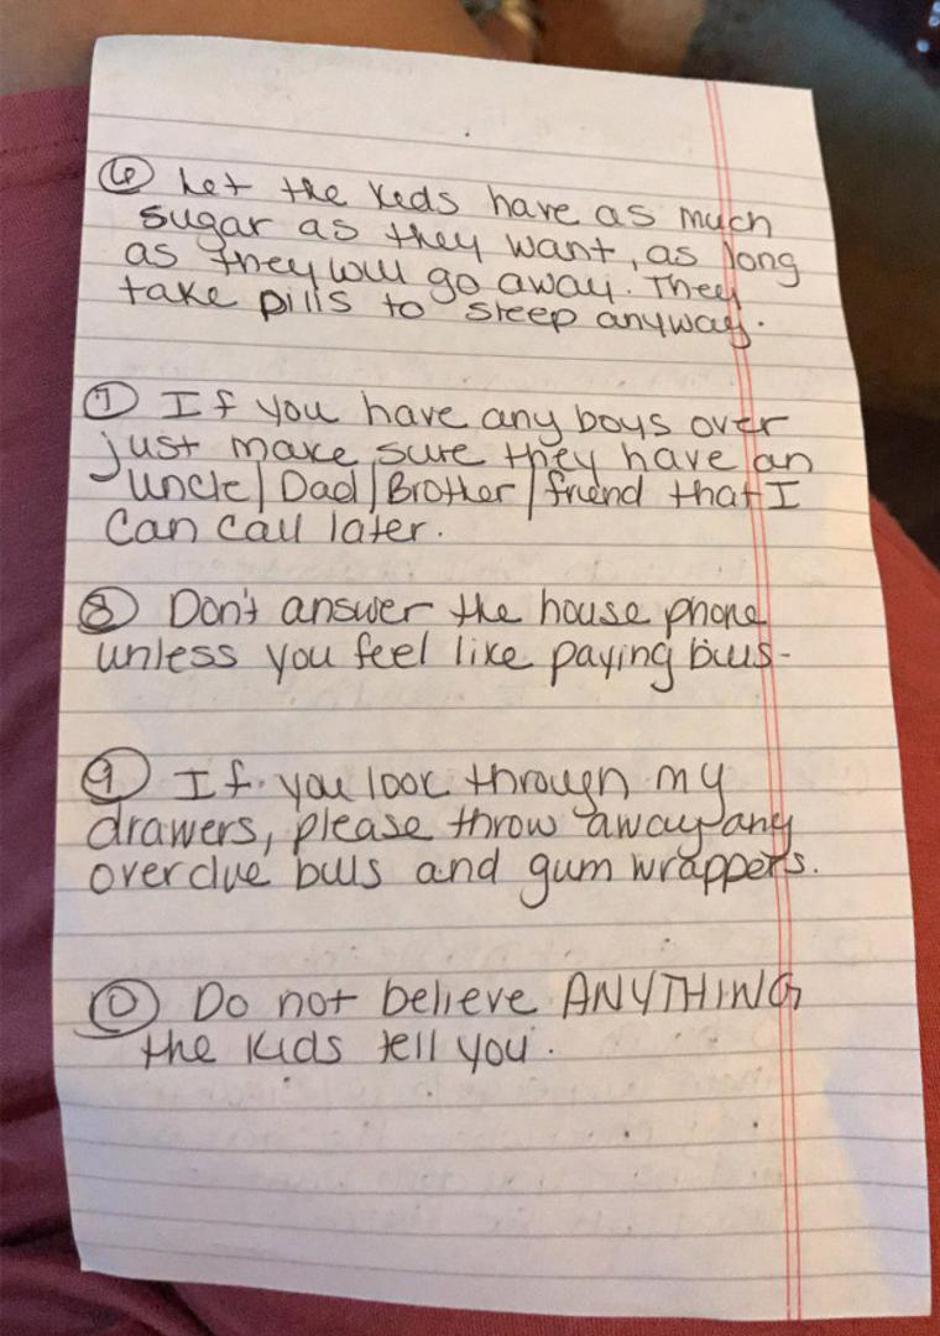 ⑥ Let the kids have as much
sugar as they want, as long
as they will go away. They
take pills to sleep anyway.
⑦ If you have any boys over
just make sure they have an
Uncle/Dad/Brother/friend that I
can call later.
⑧ Don't answer the house phone
unless you feel like paying bills-
⑨ If you look through my
drawers, please throw away any
overdue bills and gum wrappers.
⑩ Do not believe ANYTHING
the kids tell you.